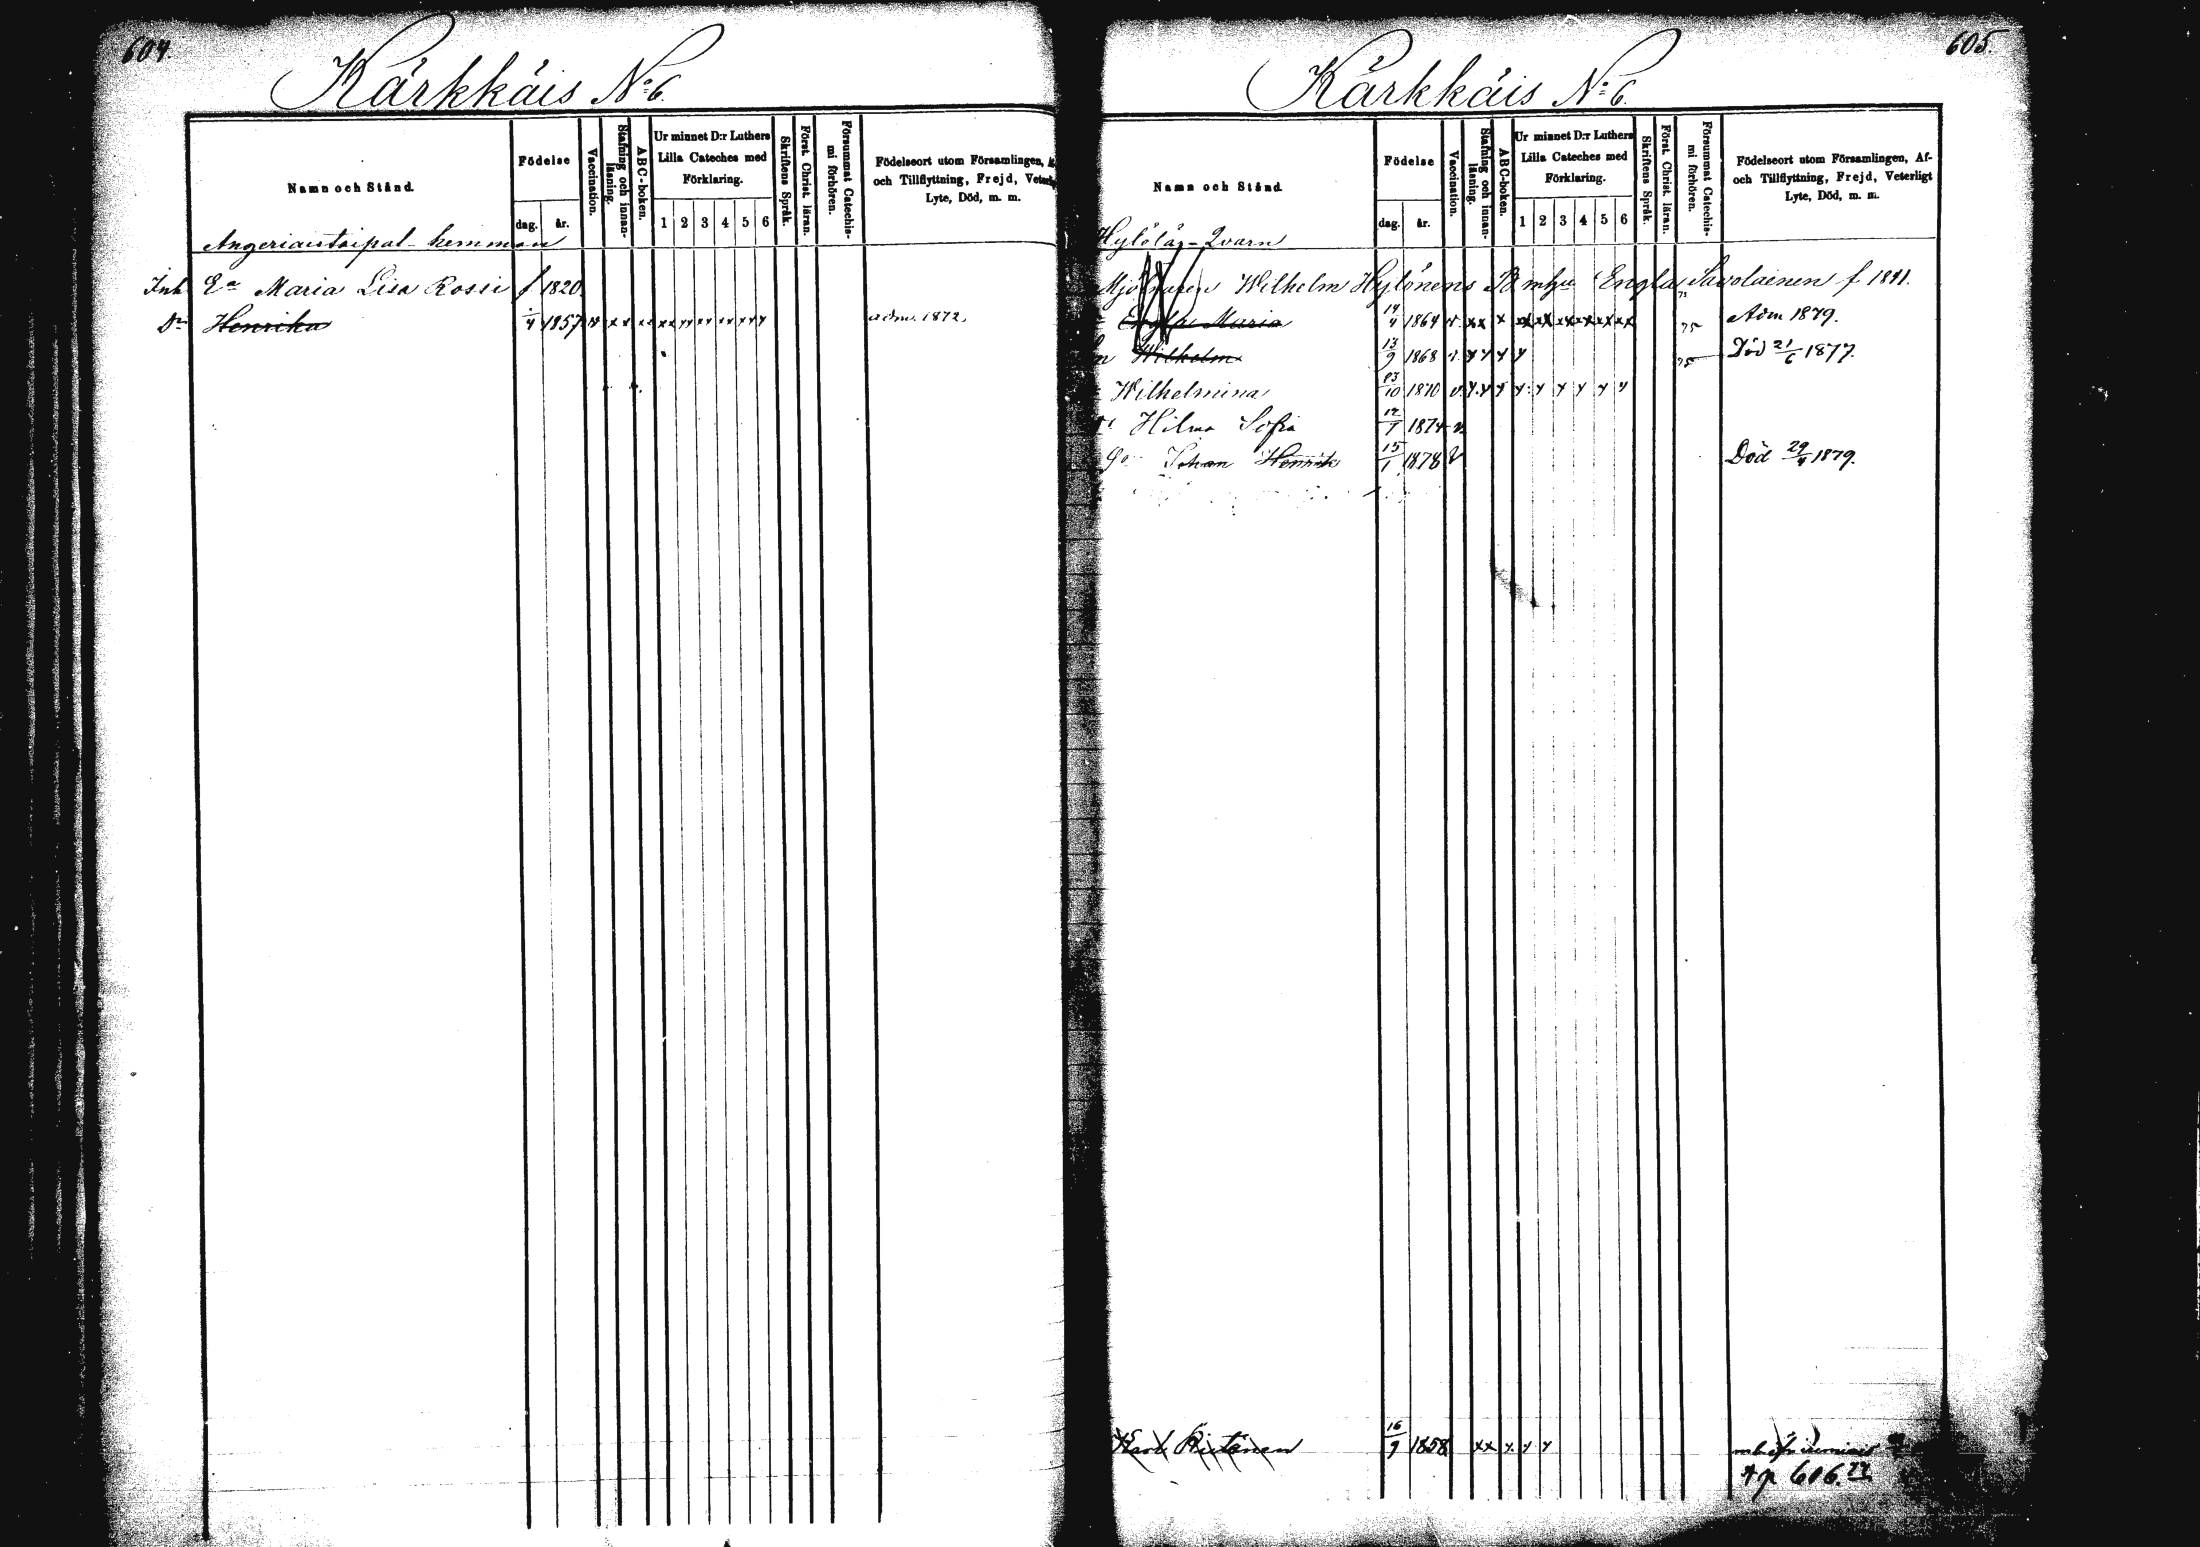 604.
Kärkkäis No 6.
Namn och Stånd.
Födelse
dag. år.
Vaccination.
Stafning och innan-läsning.
ABC-boken.
Ur minnet D:r Luthers
Lilla Cateches med
Förklaring.
1 2 3 4 5 6
Skriftens Språk.
Först. Christ. läran.
Försummat Catechis-mi förhören.
Födelseort utom Församlingen,
och Tillflyttning, Frejd,
Lyte, Död, m. m.
hemman
Inh Ea Maria Lisa Rossi f 1820.
Dr Henrika 1/4 1857 v xx xx xx xx xx xx
adm. 1872.
605.
Kärkkäis No 6.
Namn och Stånd.
Födelse
dag. år.
Vaccination.
Stafning och innan-läsning.
ABC-boken.
Ur minnet D:r Luthers
Lilla Cateches med
Förklaring.
1 2 3 4 5 6
Skriftens Språk.
Först. Christ. läran.
Försummat Catechis-mi förhören.
Födelseort utom Församlingen, Af-
och Tillflyttning, Frejd, Veterligt
Lyte, Död, m. m.
Qvarn
Mjölnaren Wilhelm Hylönens Engla Savolainen f.
Engla Maria 14/4 1864 v. xx x xx xx xx xx xx xx 75 Adm 1879.
Wilhelm 13/9 1868 v. y y y y 75 Död 21/6 1877.
Wilhelmina 23/10 1870 v. y y y y y y y y y
Hilma Sofia 12/7 1874 v.
Johan Henrik 15/1 1878 v Död 29/4 1879.
Karl 16/9 1858 xx y y y
606.